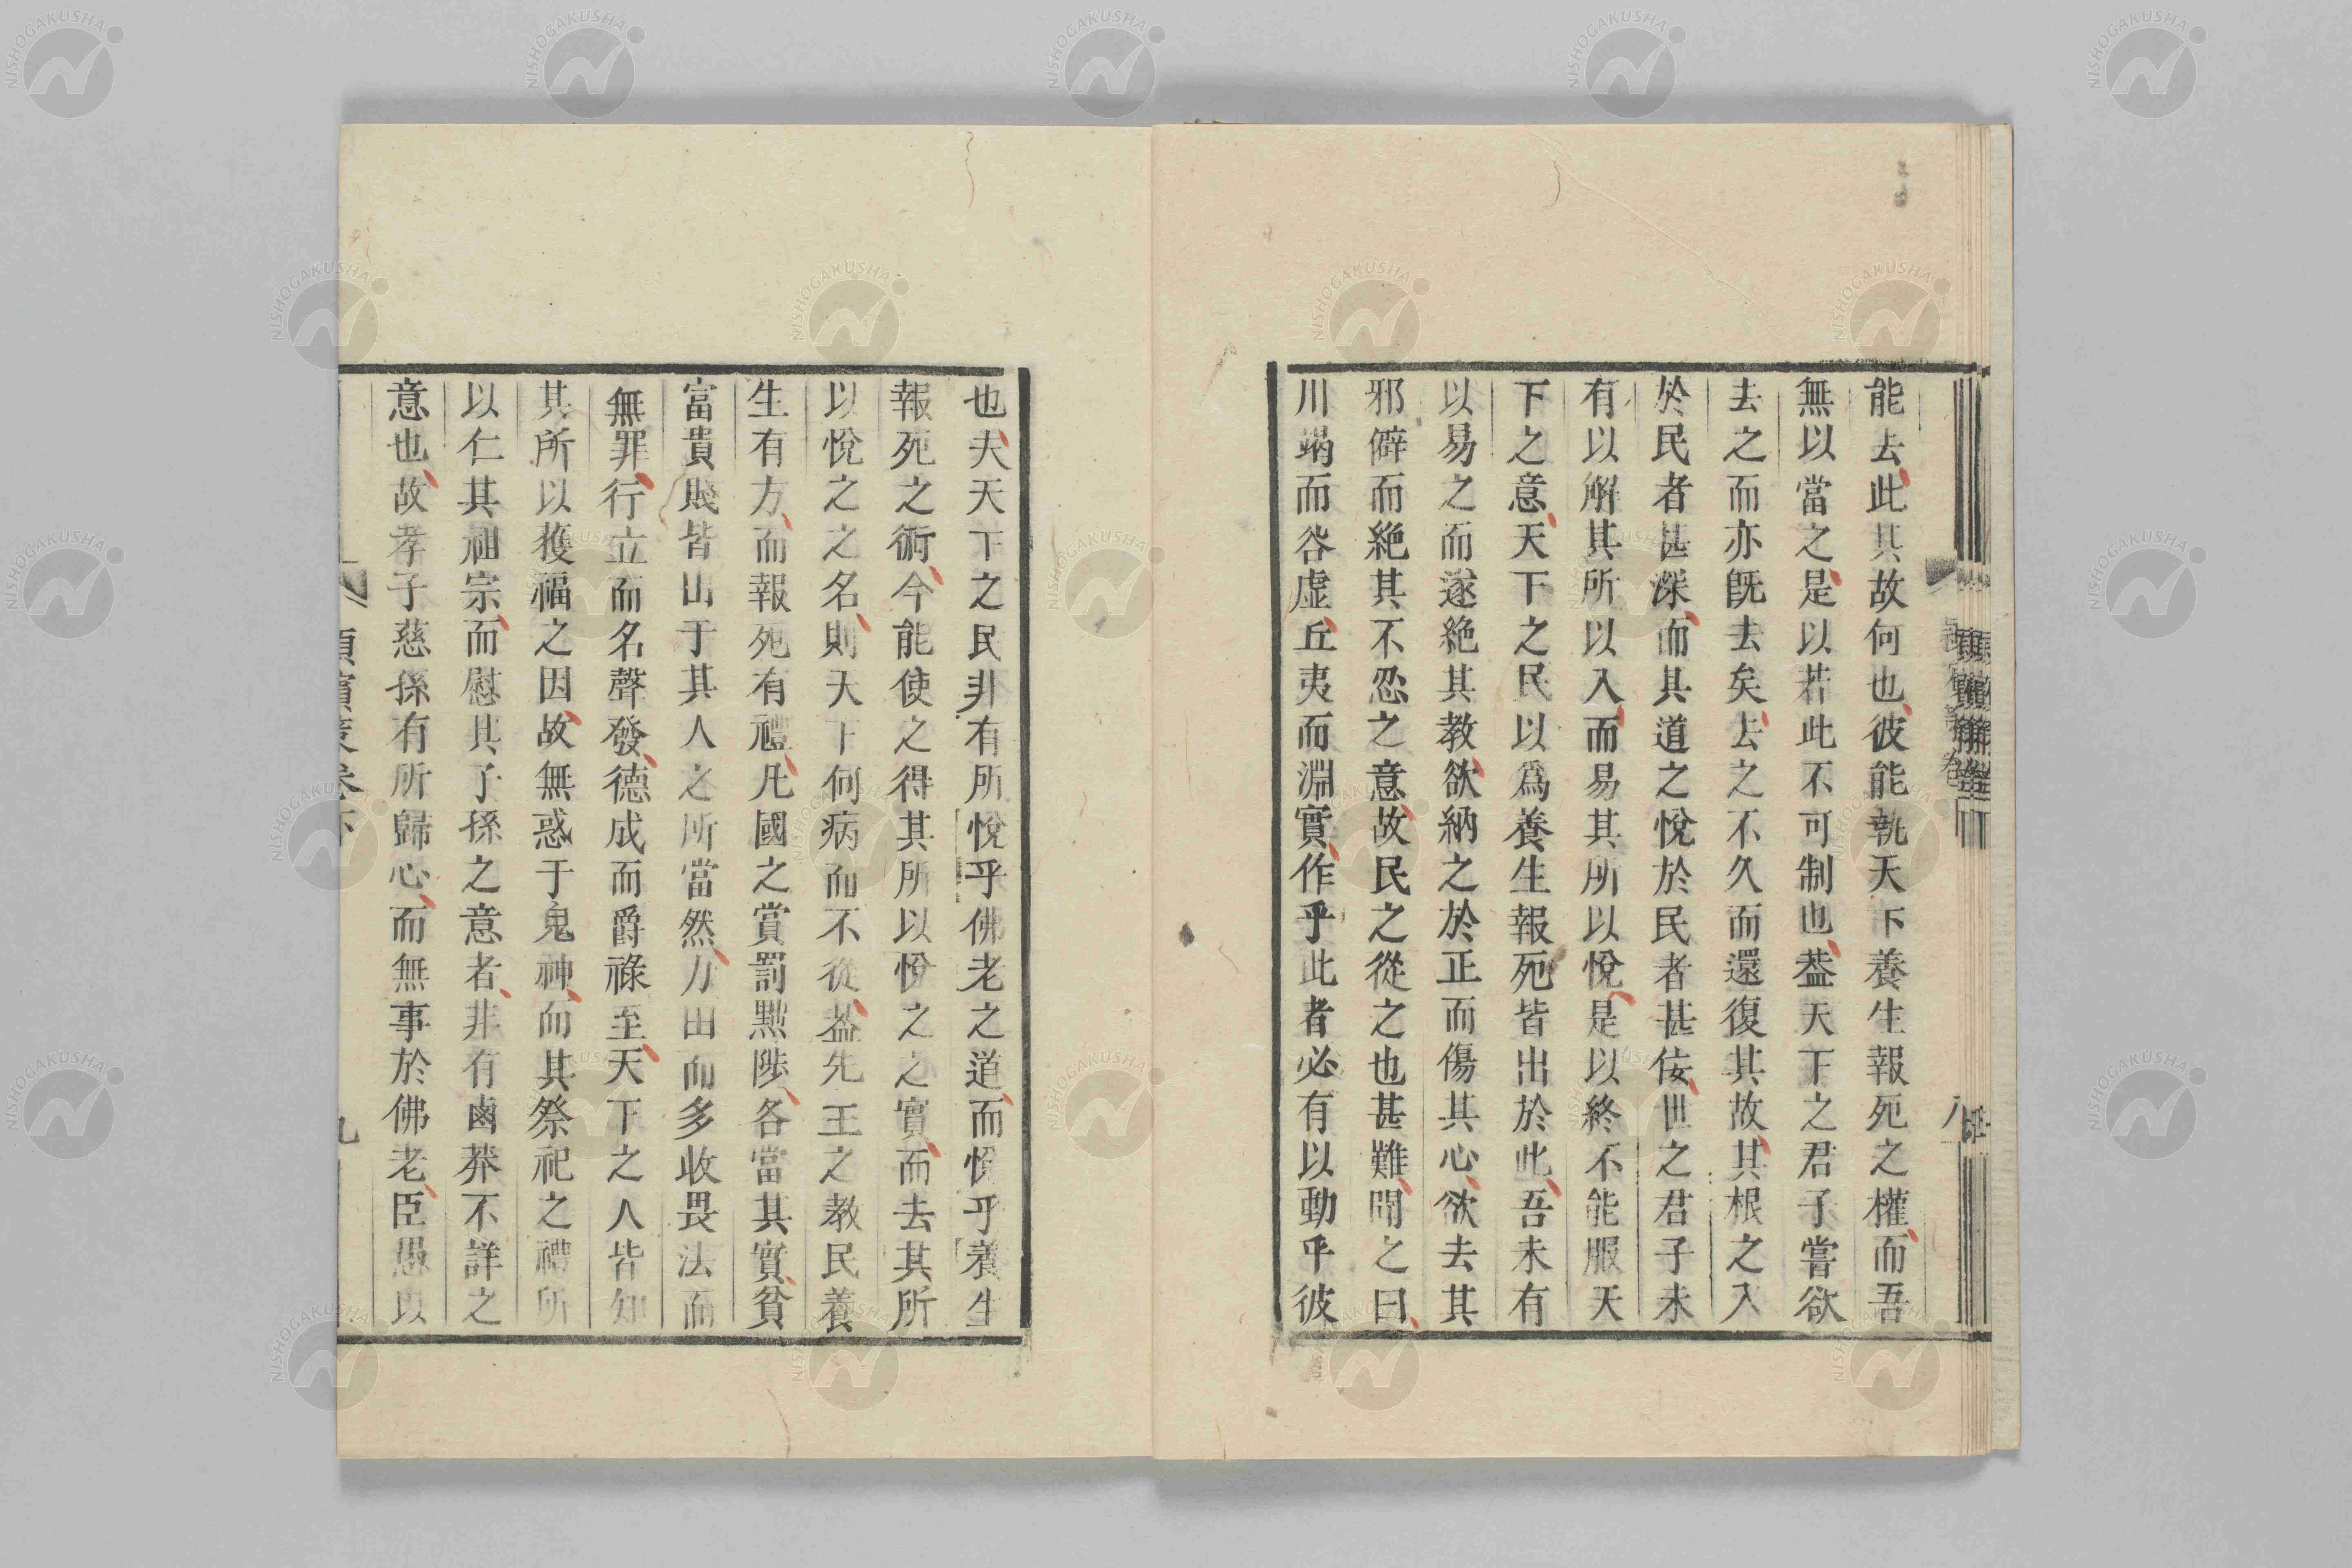 能去此其故何也彼能執天下養生報死之權而吾
無以當之是以若此不可制也葢天下之君子嘗欲
去之而亦旣去矣去之不久而還復其故其根之入
於民者甚深而其道之悅於民者甚佞世之君子未
有以解其所以入而易其所以悅是以終不能服天
下之意天下之民以爲養生報死皆出於此吾未有
以易之而遂絕其教欲納之於正而傷其心欲去其
邪僻而絕其不忍之意故民之從之也甚難聞之曰
川竭而谷虛丘夷而淵實作乎此者必有以動乎彼
也夫天下之民非有所悅乎佛老之道而悅乎養生
報死之術今能使之得其所以悅之之實而去其所
以悅之之名則天下何病而不從葢先王之教民養
生有方而報死有禮凡國之賞罰黜陟各當其實貧
富貴賤皆出于其人之所當然力田而多收畏法而
無罪行立而名聲發德成而爵祿至天下之人皆知
其所以獲福之因故無惑于鬼神而其祭祀之禮所
以仁其祖宗而慰其子孫之意者非有鹵莽不詳之
意也故孝子慈孫有所歸心而無事於佛老臣愚以
NISHOGAKUSHA